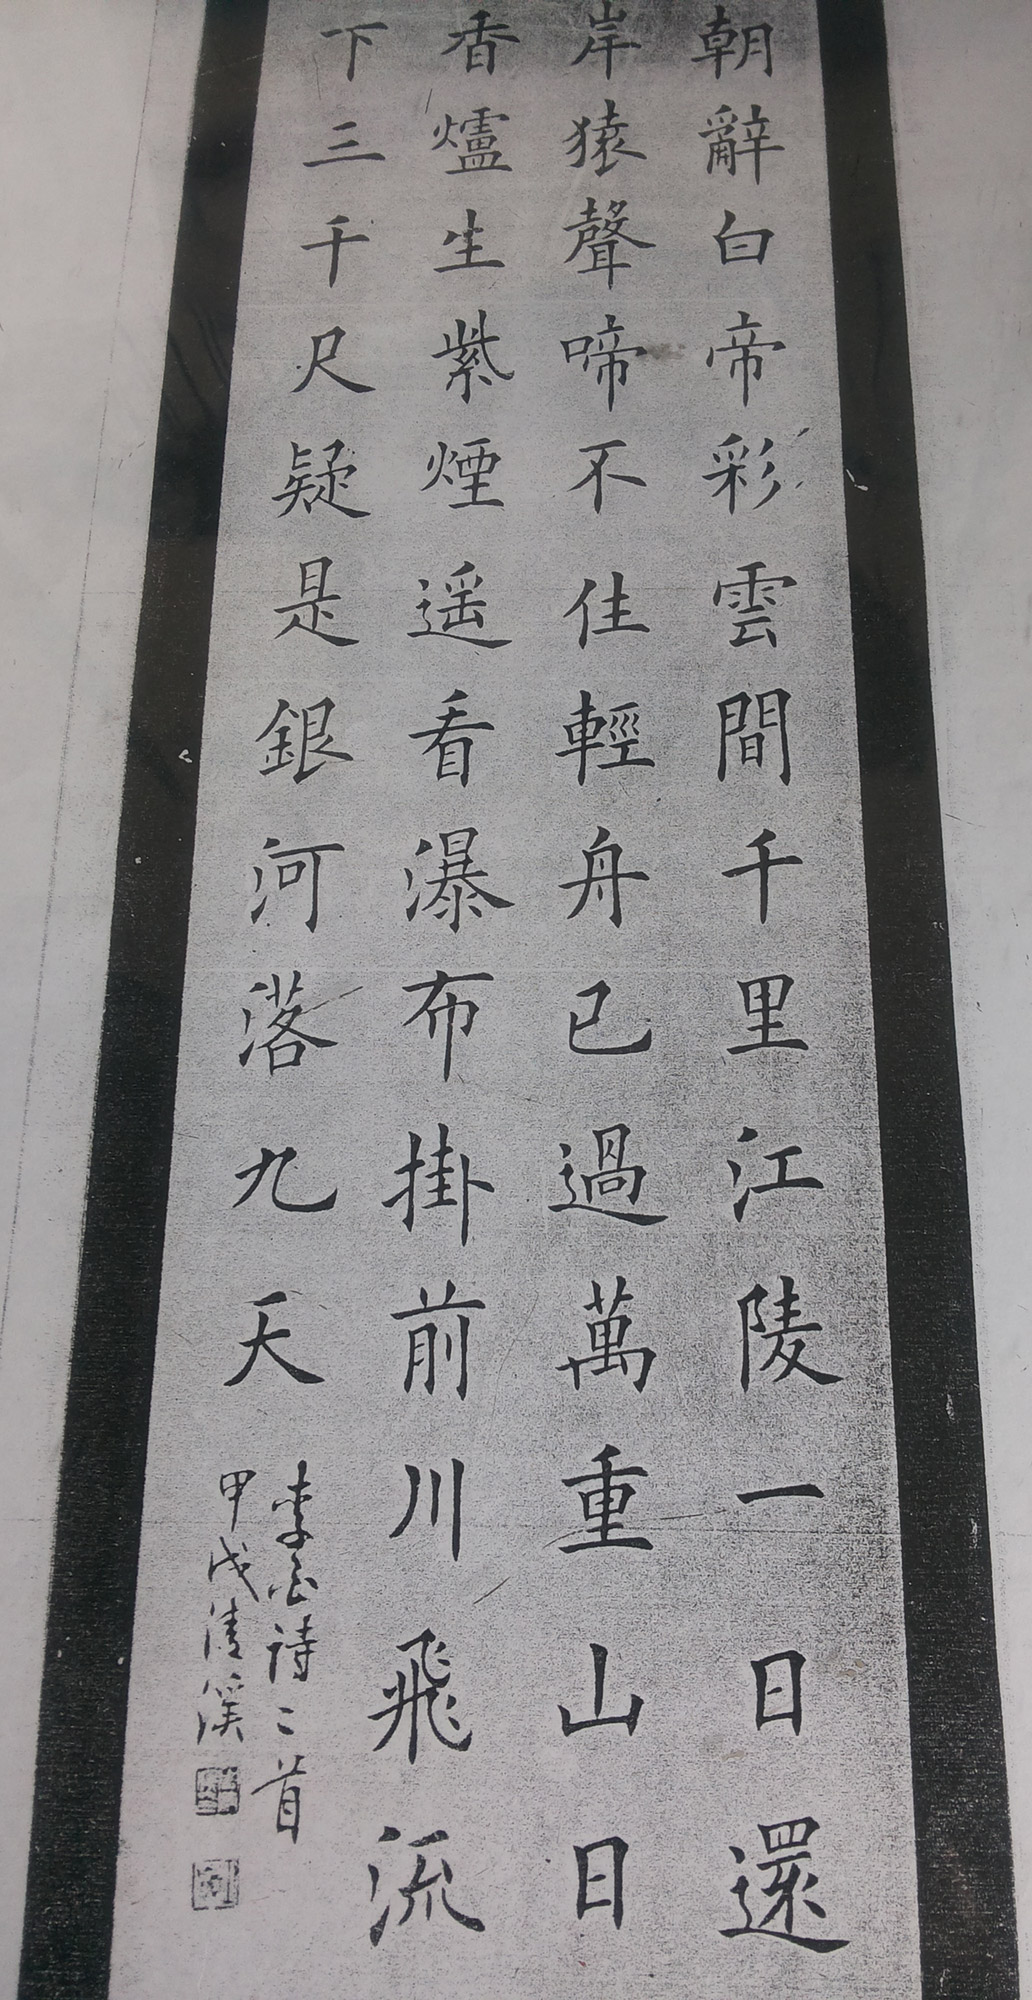 朝辭白帝彩雲間千里江陵一日還
岸猿聲啼不住輕舟已過萬重山日
香爐生紫煙遥看瀑布掛前川飛流
下三千尺疑是銀河落九天
李白詩二首
甲戌清溪